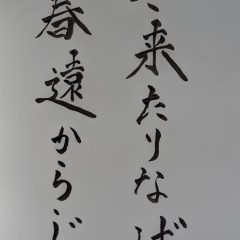 来たりなば
春遠からじ